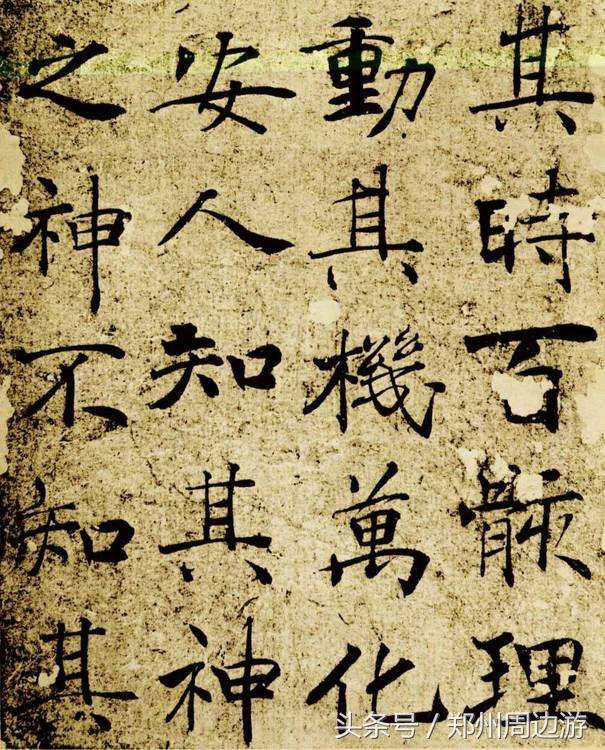 其時百骸理
動其機萬化
安人知其神
之神不知其
头条号 / 郑州周边游